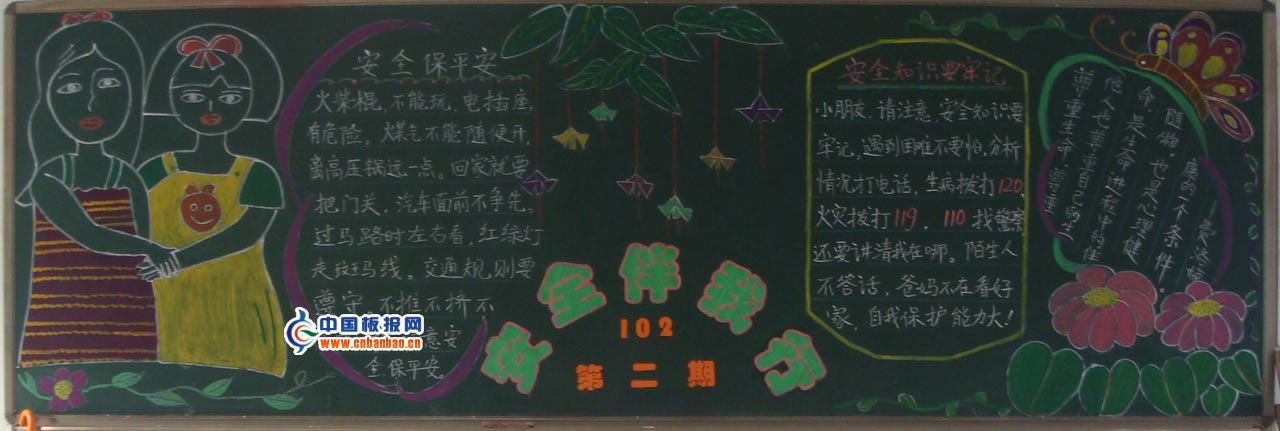 安全保平安
火柴棍,不能玩,电插座,
有危险。煤气不能随便开,
离高压锅远一点。回家就要
把门关,汽车面前不争先。
过马路时左右看,红绿灯
走斑马线。交通规则要
遵守,不推不挤不
意安
全保平安
中国板报网
www.cnbanbao.cn
安全伴我行
102
第二期
安全知识要牢记
小朋友,请注意,安全知识要
牢记,遇到困难不要怕,分析
情况打电话,生病拨打120,
火灾拨打119,110找警察
还要讲清我在哪。陌生人
不答话,爸妈不在看好
家,自我保护能力大!
尊重生命、尊重
他人也尊重自己的生
命,是生命进程中的伴
随物,也是心理健
康的一个条件。